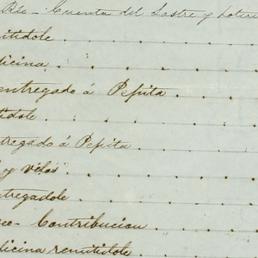 Rdo - Cuenta del Sastre y
itidole
dicina
entregado á Pepita
tidole
tregado á Pepita
y velas
tregadole
co - Contribucion
dicina remitidole